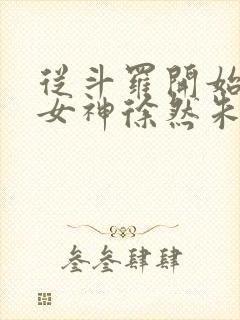 從斗羅開始
女神徐然朱
叁叁肆肆